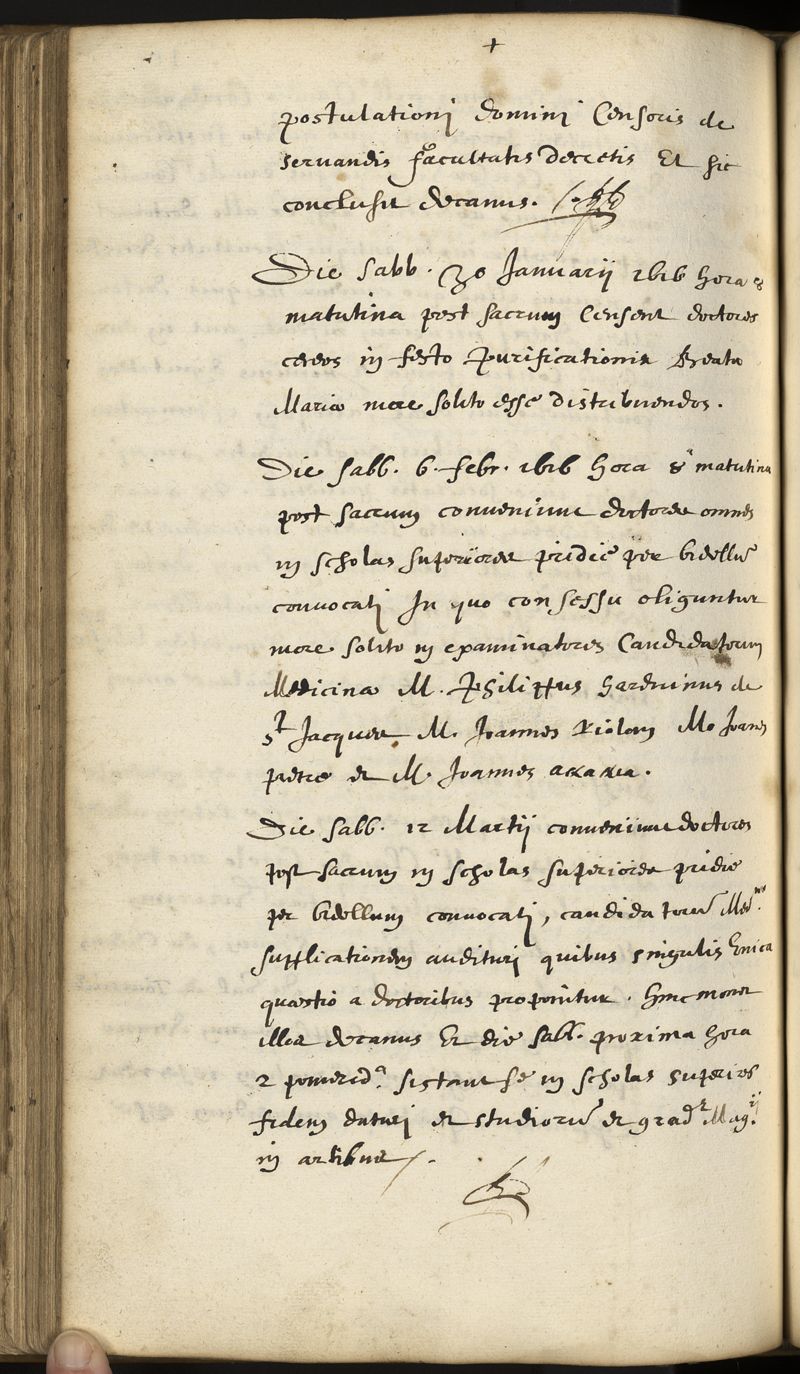 +
postulationj dominj Censoris de
servandis facultatis decretis Et sic
conclusit decanus.
Die sabb. 30 Januarij 1616 hora 8
matutina post sacrum Censent doctores
cereos in festo purificationis Beatæ
Mariæ more solito esse distribuendos.
Die sabb. 6. febr. 1616 hora 8ª matutina
post sacrum conveniunt doctores omnes
in scholas superiores pridie per bidellũ
convocatj In quo consessu eliguntur
more solito in examinatores Candidatorum
Medicinæ M. Philippus harduinus de
St Jacques M. Joannes Riolan M. Joanes
pietre et M. Joannes akakia.
Die sabb. 12 Martij conveniunt doctores
post sacrum in scholas superiores pridie
per bidellum convocatj, candidatorũ Med.
supplicationem audituri quibus singulis Unica
quæstio a doctoribus proponitur. hinc monet
illos decanus Et die sabb. proxima hora
2 pomerid.ª sistant se in scholas superires
fidem daturj et studiorũ et grad. Mag.ij
in artibus.